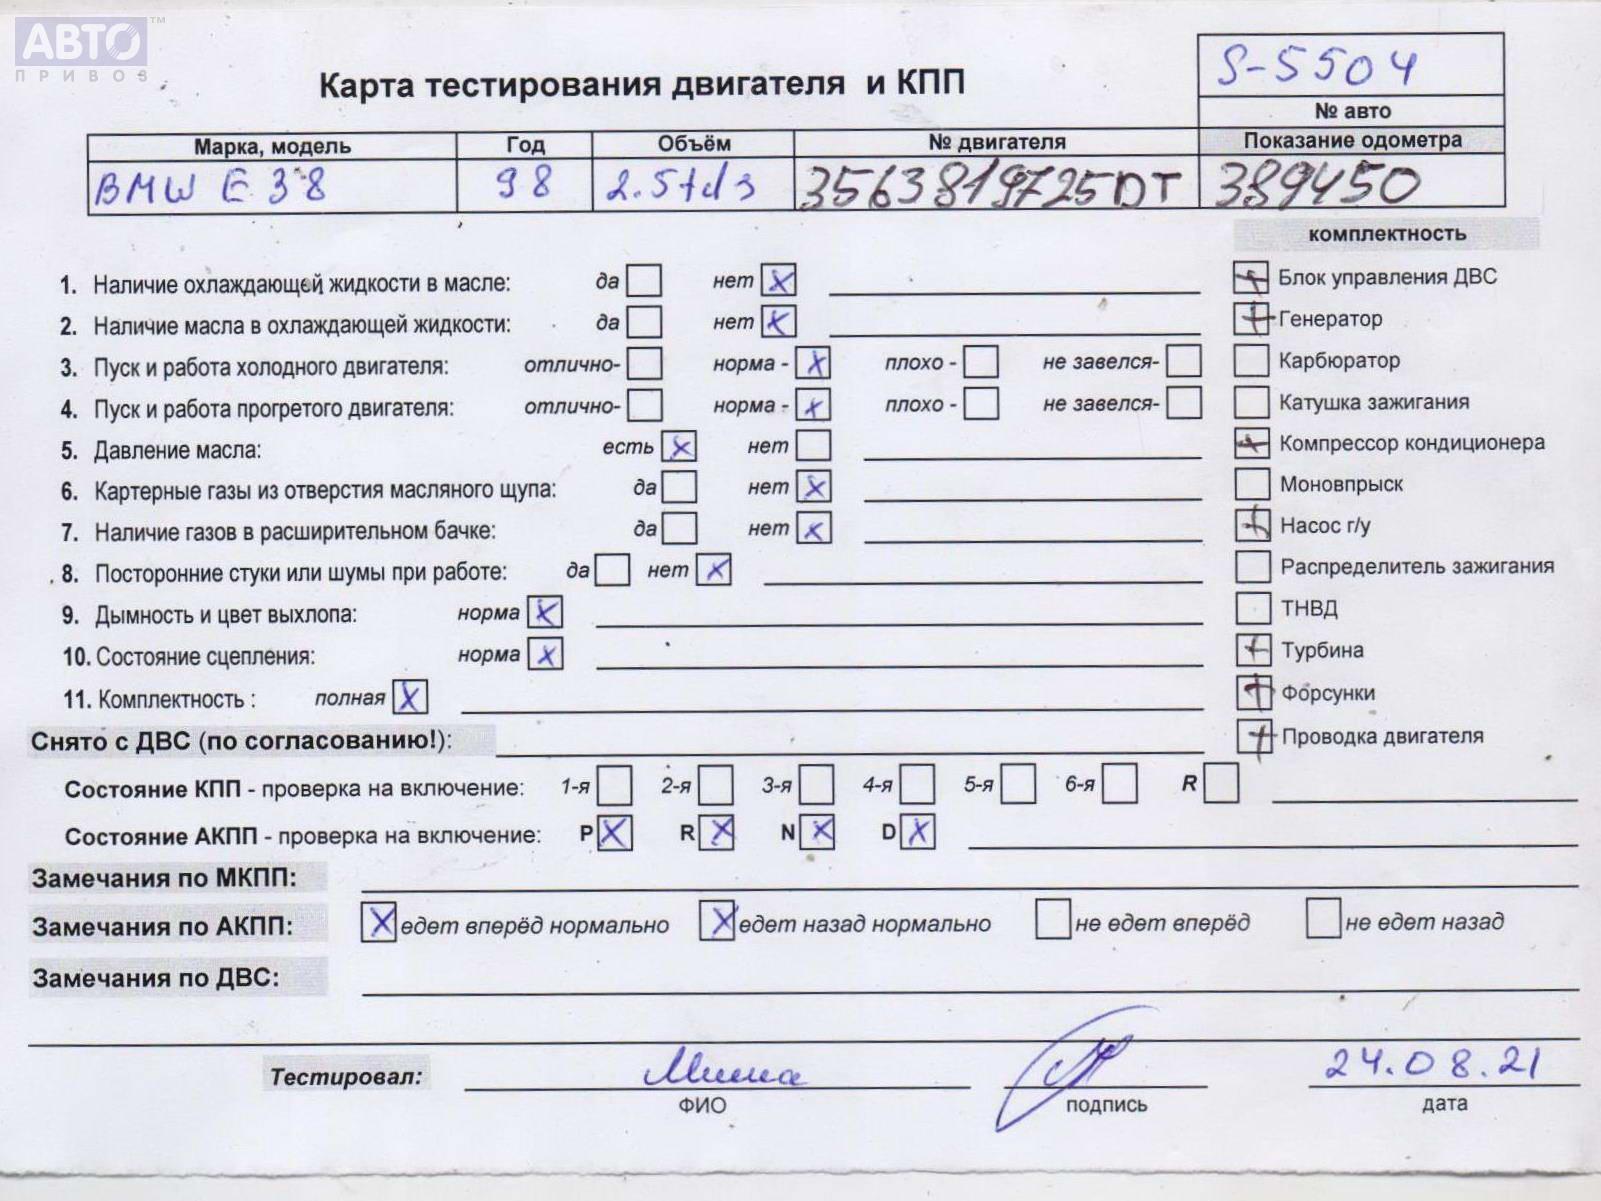 АВТО™
ПРИВОЗ
S-5504
Карта тестирования двигателя и КПП
№ авто
Марка, модель Год Объём № двигателя Показание одометра
BMW E 38 98 2.5tds 3563819725DT 389450
комплектность
1. Наличие охлаждающей жидкости в масле: да нет X
Блок управления ДВС
2. Наличие масла в охлаждающей жидкости: да нет X
Генератор
3. Пуск и работа холодного двигателя: отлично- норма - X плохо - не завелся-
Карбюратор
4. Пуск и работа прогретого двигателя: отлично- норма - X плохо - не завелся-
Катушка зажигания
5. Давление масла: есть X нет
Компрессор кондиционера
6. Картерные газы из отверстия масляного щупа: да нет X
Моновпрыск
7. Наличие газов в расширительном бачке: да нет X
Насос г/у
8. Посторонние стуки или шумы при работе: да нет X
Распределитель зажигания
9. Дымность и цвет выхлопа: норма X
ТНВД
10. Состояние сцепления: норма X
Турбина
11. Комплектность : полная X
Форсунки
Снято с ДВС (по согласованию!):
Проводка двигателя
Состояние КПП - проверка на включение: 1-я 2-я 3-я 4-я 5-я 6-я R
Состояние АКПП - проверка на включение: P X R X N X D X
Замечания по МКПП:
Замечания по АКПП: X едет вперёд нормально X едет назад нормально не едет вперёд не едет назад
Замечания по ДВС:
Тестировал: 24.08.21
ФИО подпись дата